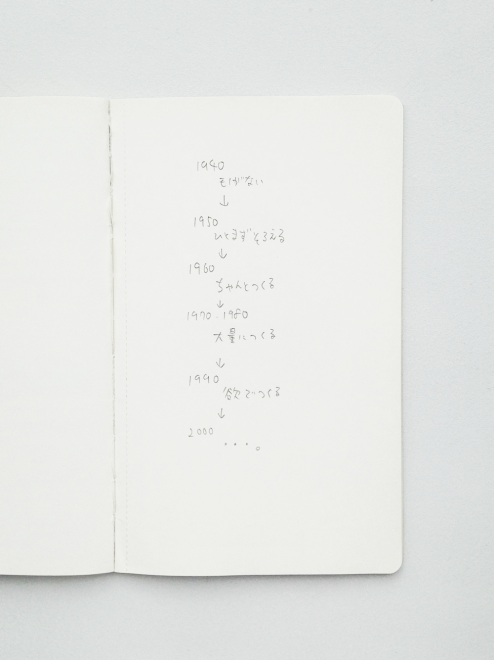 1940
モノがない
↓
1950
ひとまずそろえる
↓
1960
ちゃんとつくる
↓
1970・1980
大量につくる
↓
1990
欲でつくる
↓
2000
・・・。